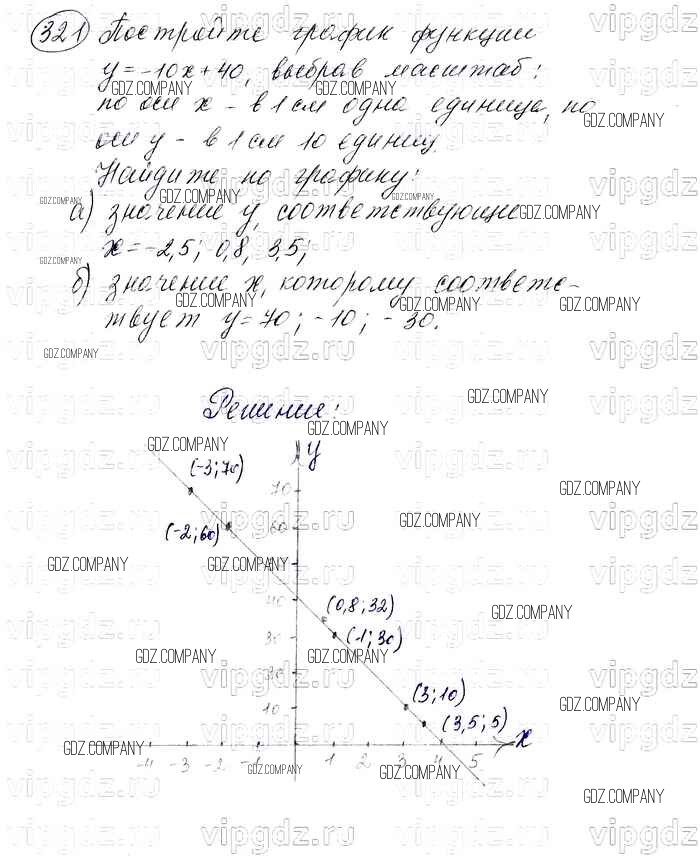 321 Постройте график функции
y=-10x+40, выбрав масштаб:
по оси x - в 1 см одна единица, по
оси y - в 1 см 10 единиц.
Найдите по графику:
а) значение y, соответствующие
x=-2,5; 0,8; 3,5;
б) значение x, которому соответс-
твует y=70; -10; -30.
Решение:
y
(-3;70)
70
(-2;60)
60
40
(0,8;32)
30
(-1;30)
20
(3;10)
10
(3,5;5)
x
-4 -3 -2 -1 1 2 3 4 5
GDZ.COMPANY
vipgdz.ru